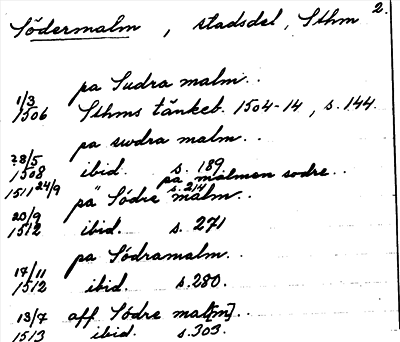 Södermalm, stadsdel, Sthm 2.
pa Sudra malm..
1/3 1506 Sthms tänkeb. 1504-14, s. 144.
pa swdra malm..
28/5 1508 ibid. s. 189
1511 24/9 pa malmen sodre.. s. 214
pa Södre malm..
20/9 1512 ibid. s. 271
pa Södramalm..
17/11 1512 ibid. s. 280.
13/7 aff Södre mal[m]..
1513 ibid. s. 303.